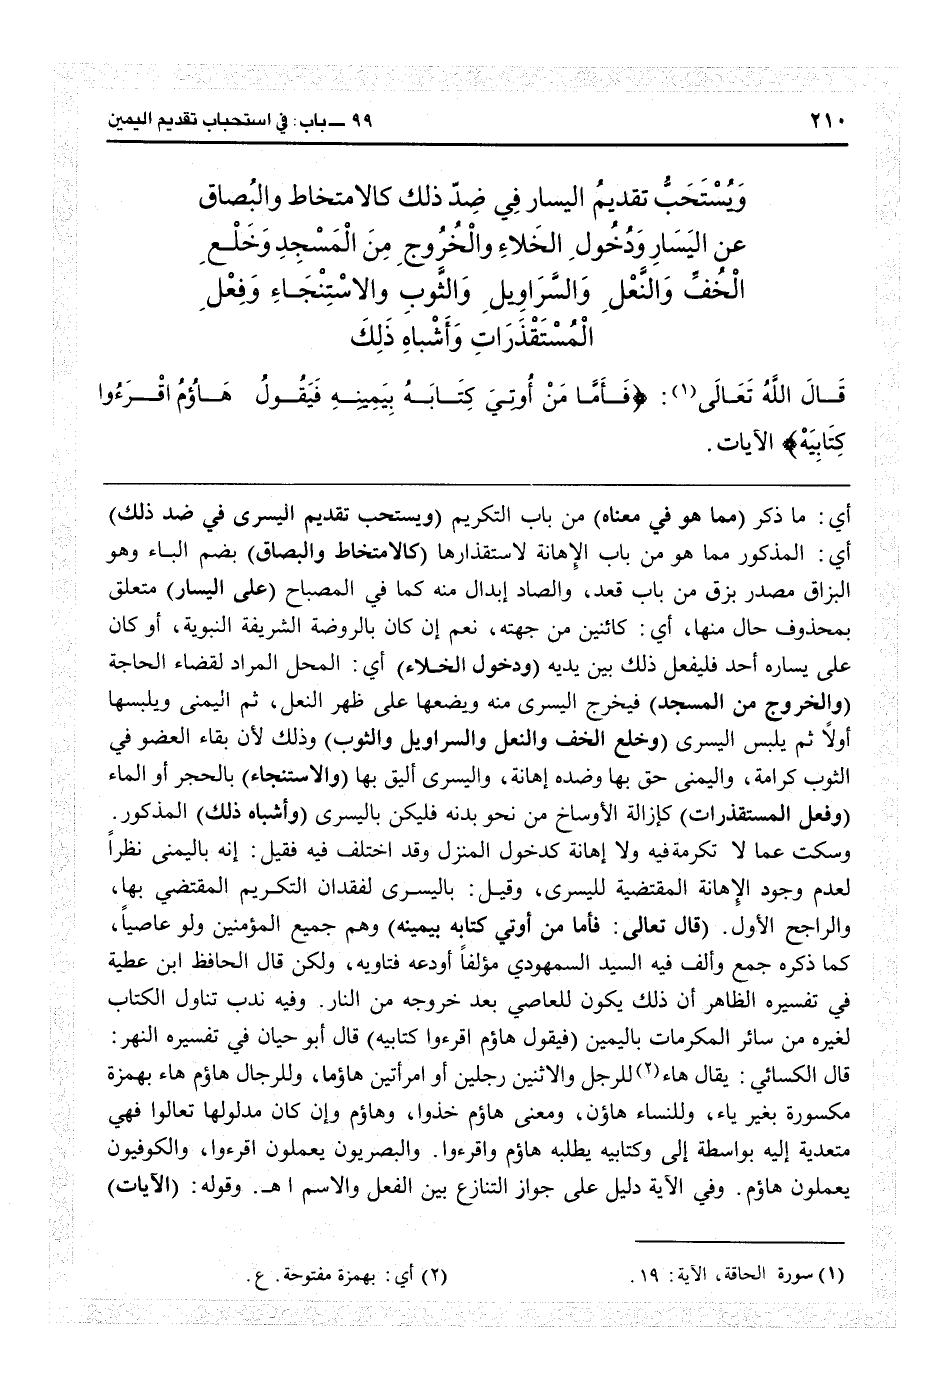 ٢١٠ ٩٩ ــ باب: في استحباب تقديم اليمين
وَيُسْتَحَبُّ تقديمُ اليسار فِي ضِدّ ذلك كالامتخاط والبُصاق
عن اليَسَارِ وَدُخُولِ الخَلاءِ والْخُرُوجِ مِنَ الْمَسْجِدِ وَخَلْعِ
الْخُفِّ وَالنَّعْلِ وَالسَّرَاوِيلِ وَالثَّوبِ والاسْتِنْجَاءِ وَفِعْلِ
الْمُسْتَقْذَرَاتِ وَأَشْباهِ ذَلِكَ
قَالَ اللَّهُ تَعَالَى(١): ﴿فَأَمَّا مَنْ أُوتِيَ كِتَابَهُ بِيَمِينِهِ فَيَقُولُ هَاؤُمُ اقْرَءُوا
كِتَابِيَهْ﴾ الآيات.
أي: ما ذكر (مما هو في معناه) من باب التكريم (ويستحب تقديم اليسرى في ضد ذلك)
أي: المذكور مما هو من باب الإهانة لاستقذارها (كالامتخاط والبصاق) بضم الباء وهو
البزاق مصدر بزق من باب قعد، والصاد إبدال منه كما في المصباح (على اليسار) متعلق
بمحذوف حال منها، أي: كائنين من جهته، نعم إن كان بالروضة الشريفة النبوية، أو كان
على يساره أحد فليفعل ذلك بين يديه (ودخول الخلاء) أي: المحل المراد لقضاء الحاجة
(والخروج من المسجد) فيخرج اليسرى منه ويضعها على ظهر النعل، ثم اليمنى ويلبسها
أولاً ثم يلبس اليسرى (وخلع الخف والنعل والسراويل والثوب) وذلك لأن بقاء العضو في
الثوب كرامة، واليمنى حق بها وضده إهانة، واليسرى أليق بها (والاستنجاء) بالحجر أو الماء
(وفعل المستقذرات) كإزالة الأوساخ من نحو بدنه فليكن باليسرى (وأشباه ذلك) المذكور.
وسكت عما لا تكرمة فيه ولا إهانة كدخول المنزل وقد اختلف فيه فقيل: إنه باليمنى نظراً
لعدم وجود الإهانة المقتضية لليسرى، وقيل: باليسرى لفقدان التكريم المقتضي بها،
والراجح الأول. (قال تعالى: فأما من أوتي كتابه بيمينه) وهم جميع المؤمنين ولو عاصياً،
كما ذكره جمع وألف فيه السيد السمهودي مؤلفاً أودعه فتاويه، ولكن قال الحافظ ابن عطية
في تفسيره الظاهر أن ذلك يكون للعاصي بعد خروجه من النار. وفيه ندب تناول الكتاب
لغيره من سائر المكرمات باليمين (فيقول هاؤم اقرءوا كتابيه) قال أبو حيان في تفسيره النهر:
قال الكسائي: يقال هاء(٢) للرجل والاثنين رجلين أو امرأتين هاؤما، وللرجال هاؤم هاء بهمزة
مكسورة بغير ياء، وللنساء هاؤن، ومعنى هاؤم خذوا، وهاؤم وإن كان مدلولها تعالوا فهي
متعدية إليه بواسطة إلى وكتابيه يطلبه هاؤم واقرءوا. والبصريون يعملون اقرءوا، والكوفيون
يعملون هاؤم. وفي الآية دليل على جواز التنازع بين الفعل والاسم ا هـ. وقوله: (الآيات)
(١) سورة الحاقة، الآية: ١٩. (٢) أي: بهمزة مفتوحة. ع.